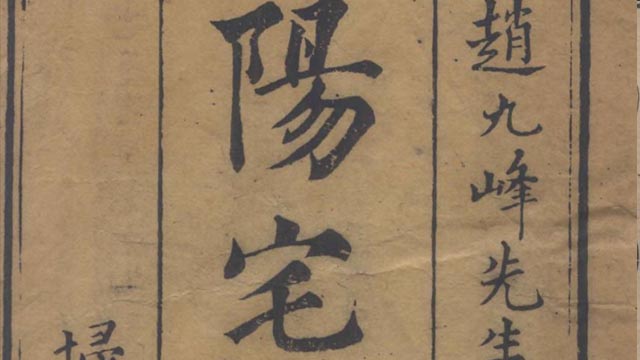 趙九峰先生
陽宅
掃